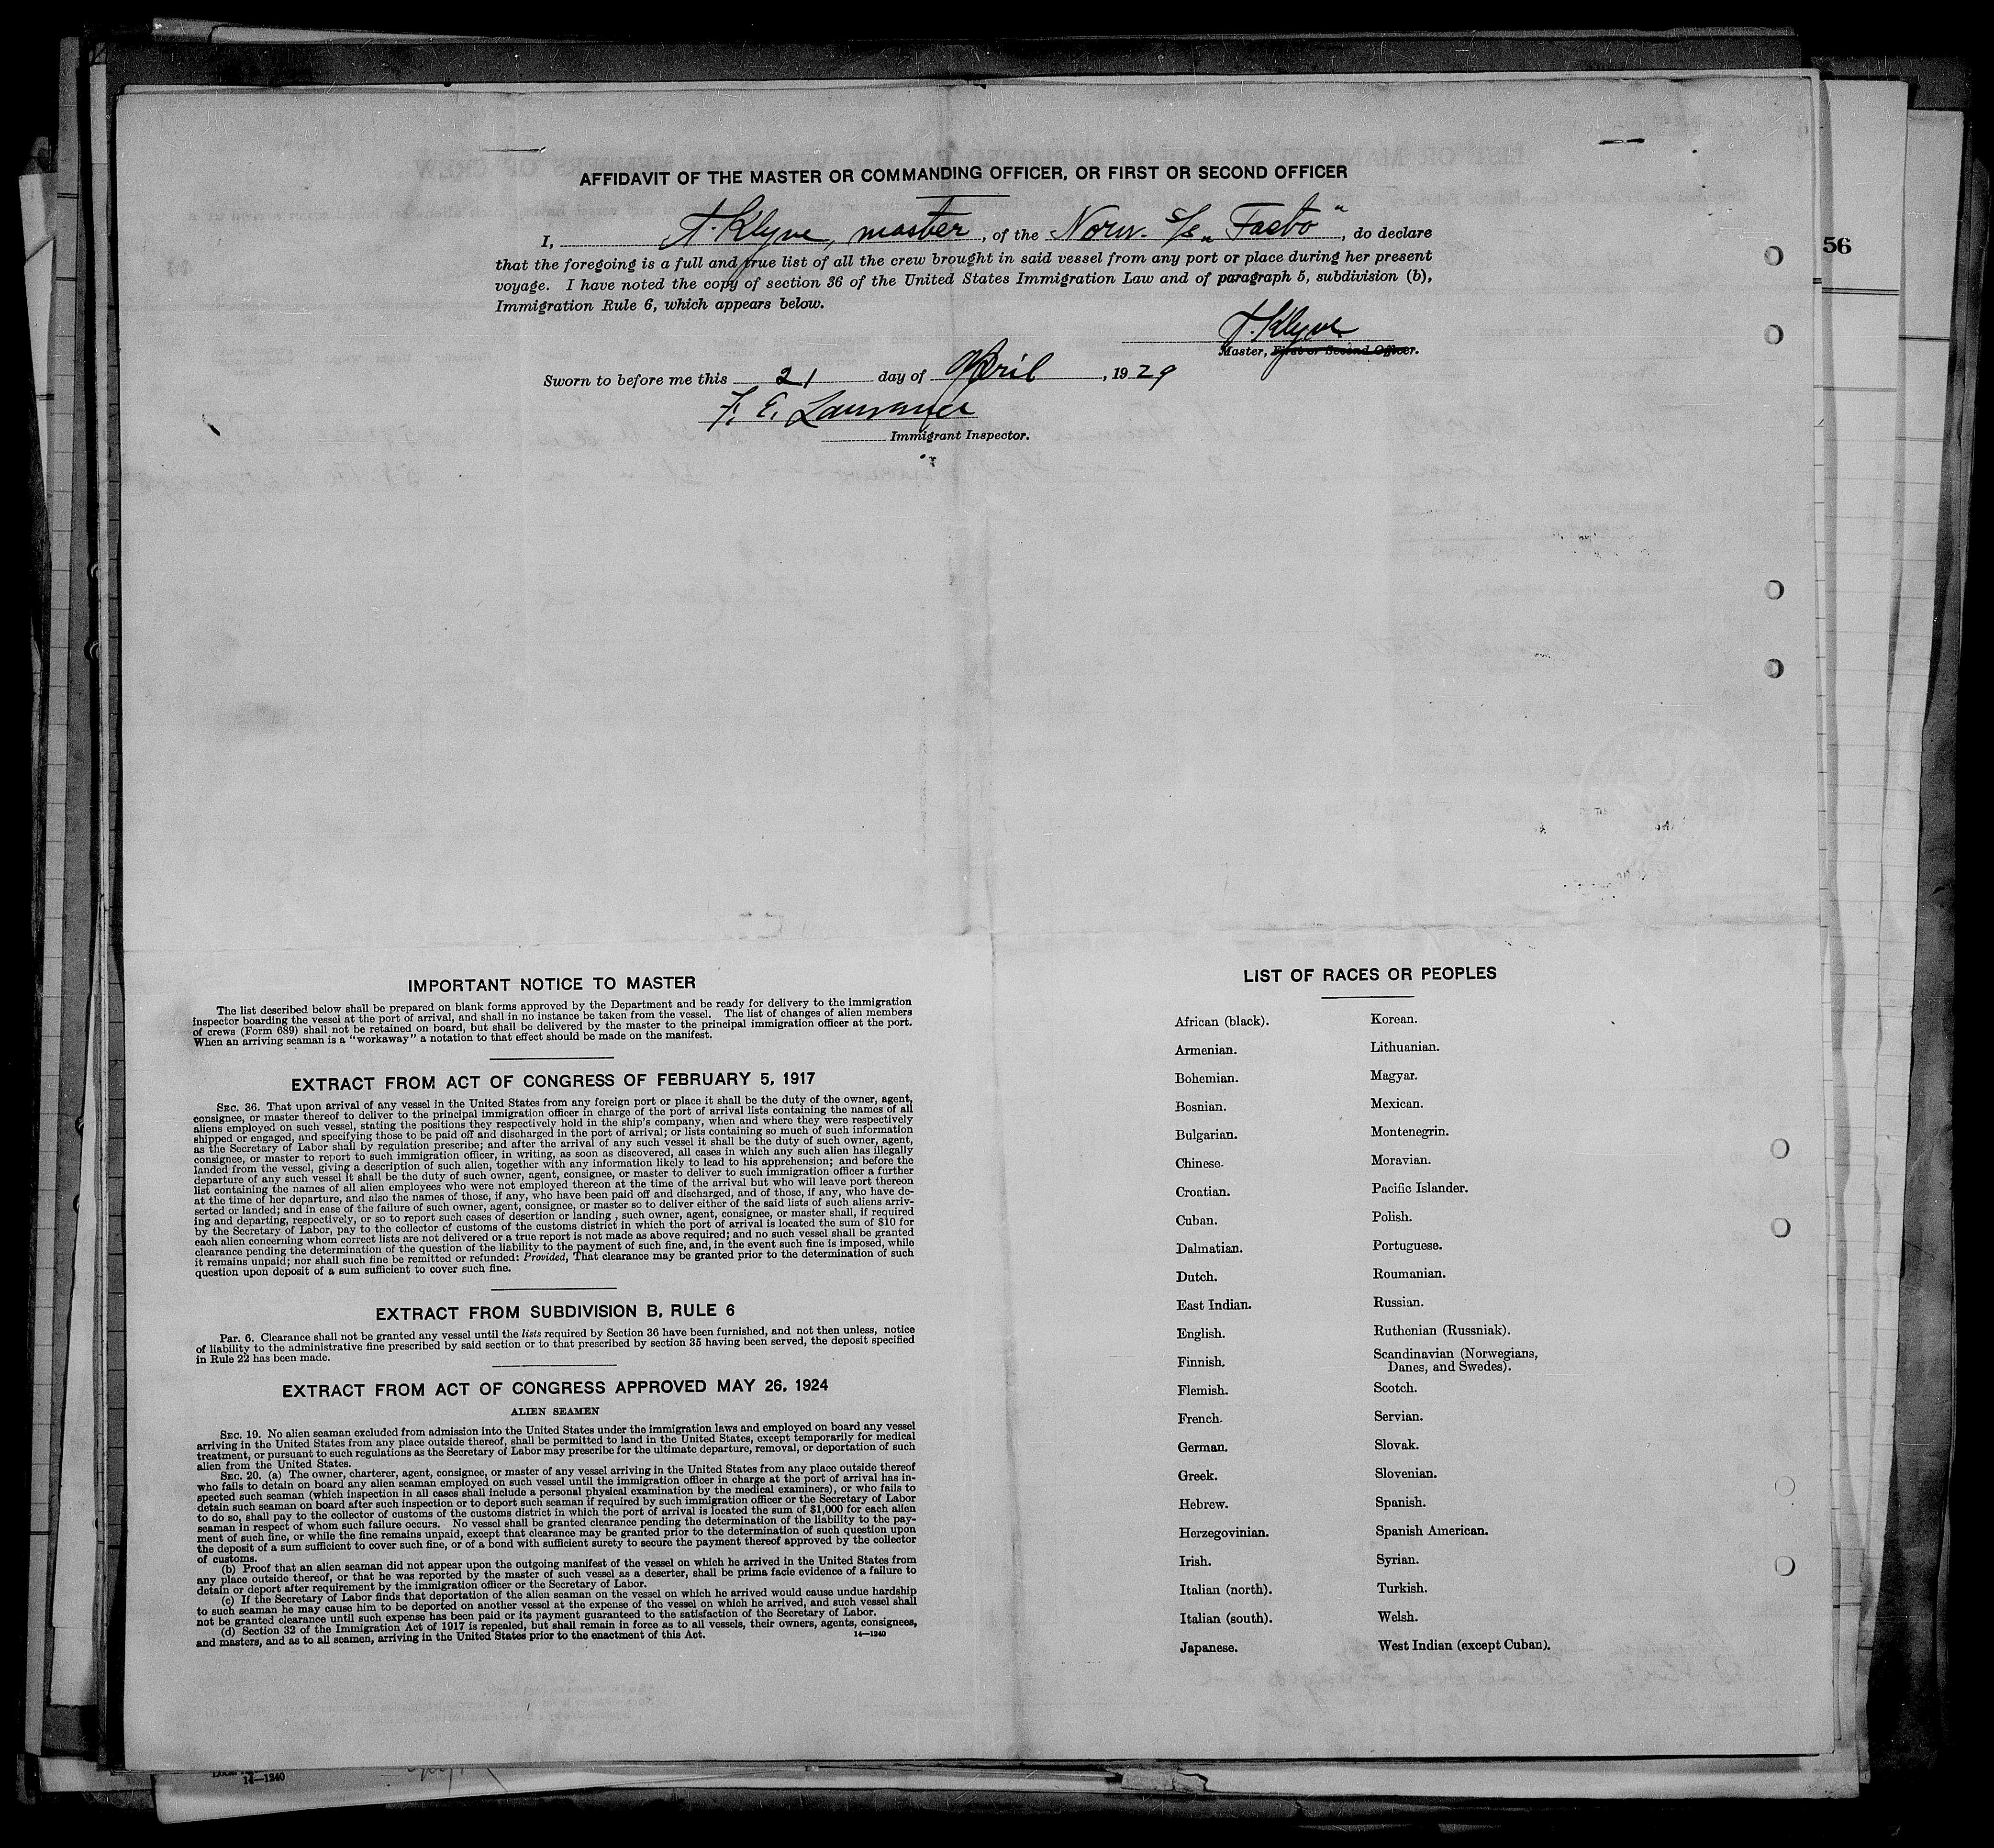 AFFIDAVIT OF THE MASTER OR COMMANDING OFFICER, OR FIRST OR SECOND OFFICER
I, T. Klyve, master, of the Norw. S/S „Facto“, do declare
that the foregoing is a full and true list of all the crew brought in said vessel from any port or place during her present
voyage. I have noted the copy of section 36 of the United States Immigration Law and of paragraph 5, subdivision (b),
Immigration Rule 6, which appears below.
T. Klyve
Master, First or Second Officer.
Sworn to before me this 21 day of April, 1929
F. E.
Immigrant Inspector.
56
IMPORTANT NOTICE TO MASTER
The list described below shall be prepared on blank forms approved by the Department and be ready for delivery to the immigration
inspector boarding the vessel at the port of arrival, and shall in no instance be taken from the vessel. The list of changes of alien members
of crews (Form 689) shall not be retained on board, but shall be delivered by the master to the principal immigration officer at the port.
When an arriving seaman is a "workaway" a notation to that effect should be made on the manifest.
EXTRACT FROM ACT OF CONGRESS OF FEBRUARY 5, 1917
SEC. 36. That upon arrival of any vessel in the United States from any foreign port or place it shall be the duty of the owner, agent,
consignee, or master thereof to deliver to the principal immigration officer in charge of the port of arrival lists containing the names of all
aliens employed on such vessel, stating the positions they respectively hold in the ship's company, when and where they were respectively
shipped or engaged, and specifying those to be paid off and discharged in the port of arrival; or lists containing so much of such information
as the Secretary of Labor shall by regulation prescribe; and after the arrival of any such vessel it shall be the duty of such owner, agent,
consignee, or master to report to such immigration officer, in writing, as soon as discovered, all cases in which any such alien has illegally
landed from the vessel, giving a description of such alien, together with any information likely to lead to his apprehension; and before the
departure of any such vessel it shall be the duty of such owner, agent, consignee, or master to deliver to such immigration officer a further
list containing the names of all alien employees who were not employed thereon at the time of the arrival but who will leave port thereon
at the time of her departure, and also the names of those, if any, who have been paid off and discharged, and of those, if any, who have de-
serted or landed; and in case of the failure of such owner, agent, consignee, or master so to deliver either of the said lists of such aliens arriv-
ing and departing, respectively, or so to report such cases of desertion or landing, such owner, agent, consignee, or master shall, if required
by the Secretary of Labor, pay to the collector of customs of the customs district in which the port of arrival is located the sum of $10 for
each alien concerning whom correct lists are not delivered or a true report is not made as above required; and no such vessel shall be granted
clearance pending the determination of the question of the liability to the payment of such fine, and, in the event such fine is imposed, while
it remains unpaid; nor shall such fine be remitted or refunded: Provided, That clearance may be granted prior to the determination of such
question upon deposit of a sum sufficient to cover such fine.
EXTRACT FROM SUBDIVISION B, RULE 6
Par. 6. Clearance shall not be granted any vessel until the lists required by Section 36 have been furnished, and not then unless, notice
of liability to the administrative fine prescribed by said section or to that prescribed by section 35 having been served, the deposit specified
in Rule 22 has been made.
EXTRACT FROM ACT OF CONGRESS APPROVED MAY 26, 1924
ALIEN SEAMEN
SEC. 19. No alien seaman excluded from admission into the United States under the immigration laws and employed on board any vessel
arriving in the United States from any place outside thereof, shall be permitted to land in the United States, except temporarily for medical
treatment, or pursuant to such regulations as the Secretary of Labor may prescribe for the ultimate departure, removal, or deportation of such
alien from the United States.
SEC. 20. (a) The owner, charterer, agent, consignee, or master of any vessel arriving in the United States from any place outside thereof
who fails to detain on board any alien seaman employed on such vessel until the immigration officer in charge at the port of arrival has in-
spected such seaman (which inspection in all cases shall include a personal physical examination by the medical examiners), or who fails to
detain such seaman on board after such inspection or to deport such seaman if required by such immigration officer or the Secretary of Labor
to do so, shall pay to the collector of customs of the customs district in which the port of arrival is located the sum of $1,000 for each alien
seaman in respect of whom such failure occurs. No vessel shall be granted clearance pending the determination of the liability to the pay-
ment of such fine, or while the fine remains unpaid, except that clearance may be granted prior to the determination of such question upon
the deposit of a sum sufficient to cover such fine, or of a bond with sufficient surety to secure the payment thereof approved by the collector
of customs.
(b) Proof that an alien seaman did not appear upon the outgoing manifest of the vessel on which he arrived in the United States from
any place outside thereof, or that he was reported by the master of such vessel as a deserter, shall be prima facie evidence of a failure to
detain or deport after requirement by the immigration officer or the Secretary of Labor.
(c) If the Secretary of Labor finds that deportation of the alien seaman on the vessel on which he arrived would cause undue hardship
to such seaman he may cause him to be deported on another vessel at the expense of the vessel on which he arrived, and such vessel shall
not be granted clearance until such expense has been paid or its payment guaranteed to the satisfaction of the Secretary of Labor.
(d) Section 32 of the Immigration Act of 1917 is repealed, but shall remain in force as to all vessels, their owners, agents, consignees,
and masters, and as to all seamen, arriving in the United States prior to the enactment of this Act.
14—1240
LIST OF RACES OR PEOPLES
African (black).
Armenian.
Bohemian.
Bosnian.
Bulgarian.
Chinese.
Croatian.
Cuban.
Dalmatian.
Dutch.
East Indian.
English.
Finnish.
Flemish.
French.
German.
Greek.
Hebrew.
Herzegovinian.
Irish.
Italian (north).
Italian (south).
Japanese.
Korean.
Lithuanian.
Magyar.
Mexican.
Montenegrin.
Moravian.
Pacific Islander.
Polish.
Portuguese.
Roumanian.
Russian.
Ruthenian (Russniak).
Scandinavian (Norwegians,
Danes, and Swedes).
Scotch.
Servian.
Slovak.
Slovenian.
Spanish.
Spanish American.
Syrian.
Turkish.
Welsh.
West Indian (except Cuban).
14—1240